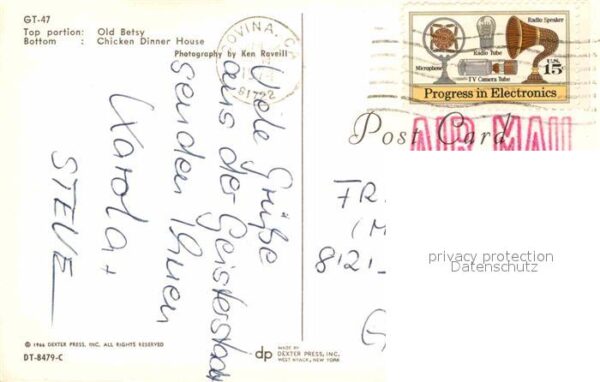 GT-47
Top portion: Old Betsy
Bottom : Chicken Dinner House
Photography by Ken Raveill
OVINA, CA
91722
Radio Speaker
Radio Tube
Microphone
TV Camera Tube
U.S. 15c
Progress in Electronics
Post Card
AIR MAIL
Viele Grüße
aus der Geisterstadt
senden Ihnen
Karola +
STEVE
FR.
(M
8121-
G
privacy protection
Datenschutz
© 1966 DEXTER PRESS, INC. ALL RIGHTS RESERVED
DT-8479-C
dp MADE BY
DEXTER PRESS, INC.
WEST NYACK, NEW YORK